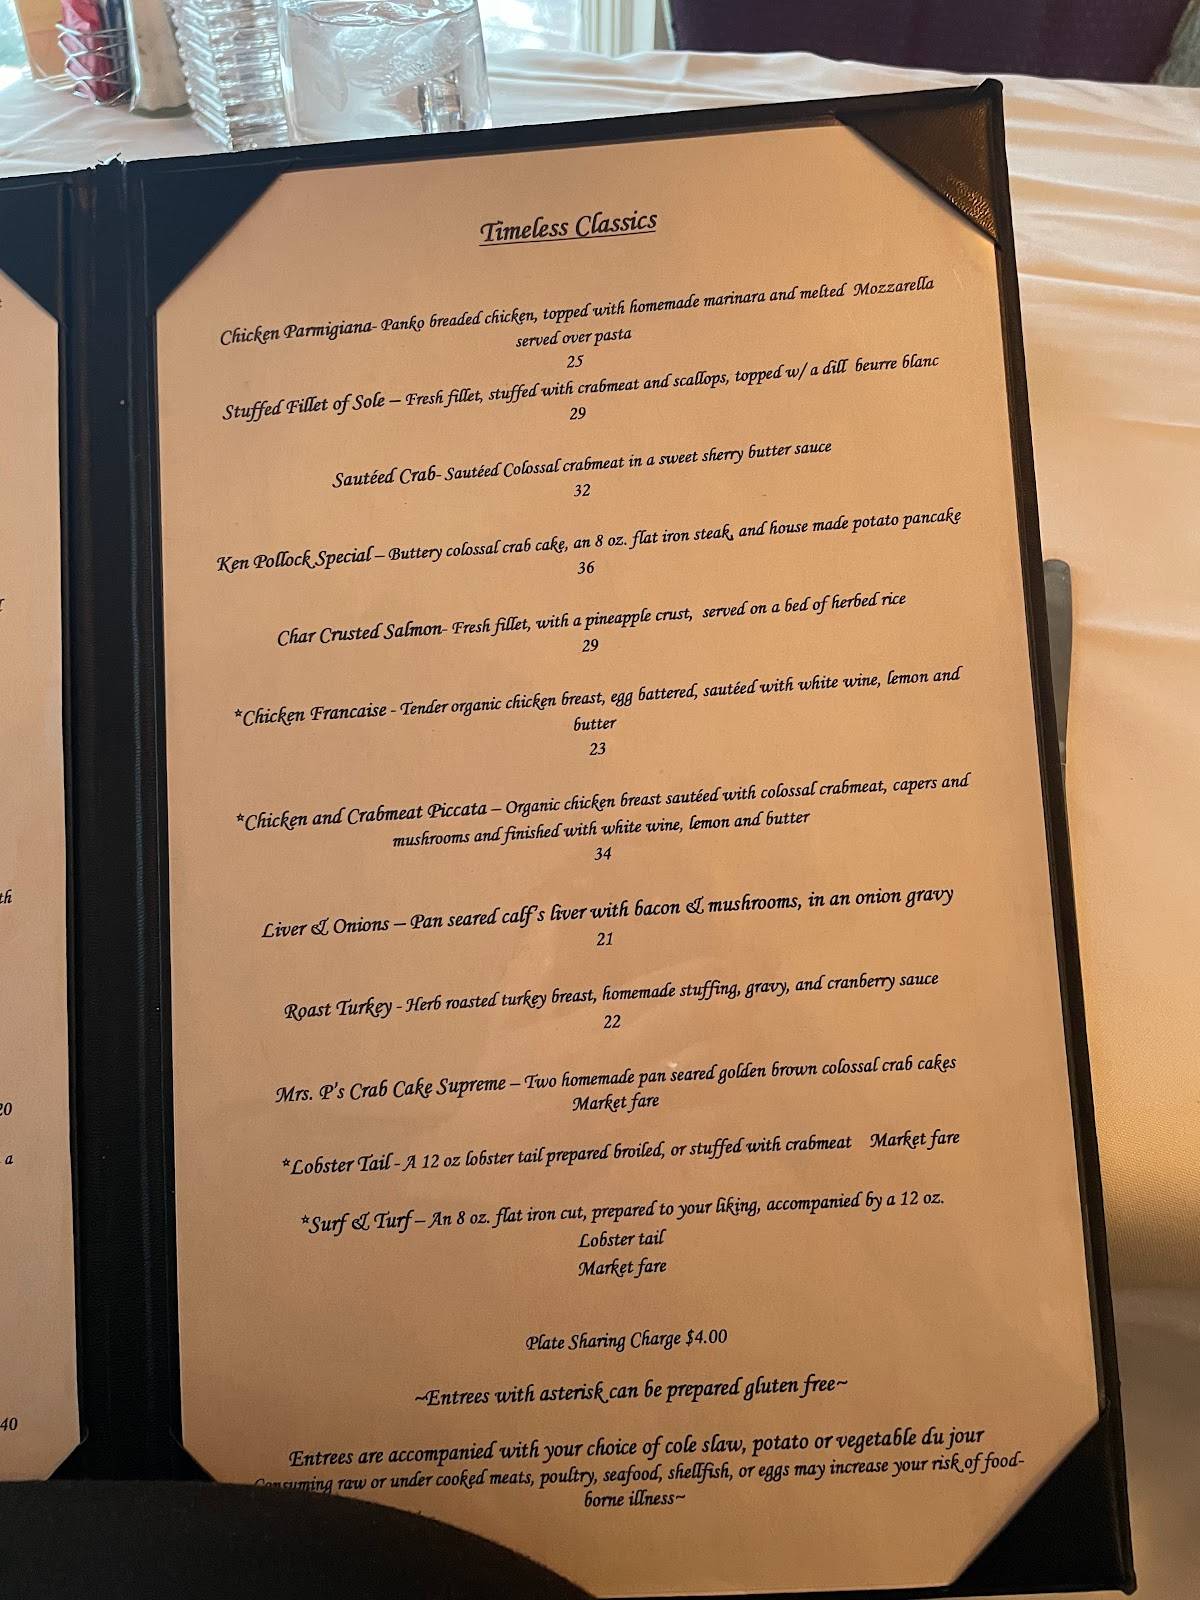 th
20
a
40
Timeless Classics
Chicken Parmigiana- Panko breaded chicken, topped with homemade marinara and melted Mozzarella
served over pasta
25
Stuffed Fillet of Sole – Fresh fillet, stuffed with crabmeat and scallops, topped w/ a dill beurre blanc
29
Sautéed Crab- Sautéed Colossal crabmeat in a sweet sherry butter sauce
32
Ken Pollock Special – Buttery colossal crab cake, an 8 oz. flat iron steak, and house made potato pancake
36
Char Crusted Salmon- Fresh fillet, with a pineapple crust, served on a bed of herbed rice
29
*Chicken Francaise - Tender organic chicken breast, egg battered, sautéed with white wine, lemon and
butter
23
*Chicken and Crabmeat Piccata – Organic chicken breast sautéed with colossal crabmeat, capers and
mushrooms and finished with white wine, lemon and butter
34
Liver & Onions – Pan seared calf's liver with bacon & mushrooms, in an onion gravy
21
Roast Turkey - Herb roasted turkey breast, homemade stuffing, gravy, and cranberry sauce
22
Mrs. P's Crab Cake Supreme – Two homemade pan seared golden brown colossal crab cakes
Market fare
*Lobster Tail - A 12 oz lobster tail prepared broiled, or stuffed with crabmeat Market fare
*Surf & Turf – An 8 oz. flat iron cut, prepared to your liking, accompanied by a 12 oz.
Lobster tail
Market fare
Plate Sharing Charge $4.00
~Entrees with asterisk can be prepared gluten free~
Entrees are accompanied with your choice of cole slaw, potato or vegetable du jour
Consuming raw or under cooked meats, poultry, seafood, shellfish, or eggs may increase your risk of food-
borne illness~